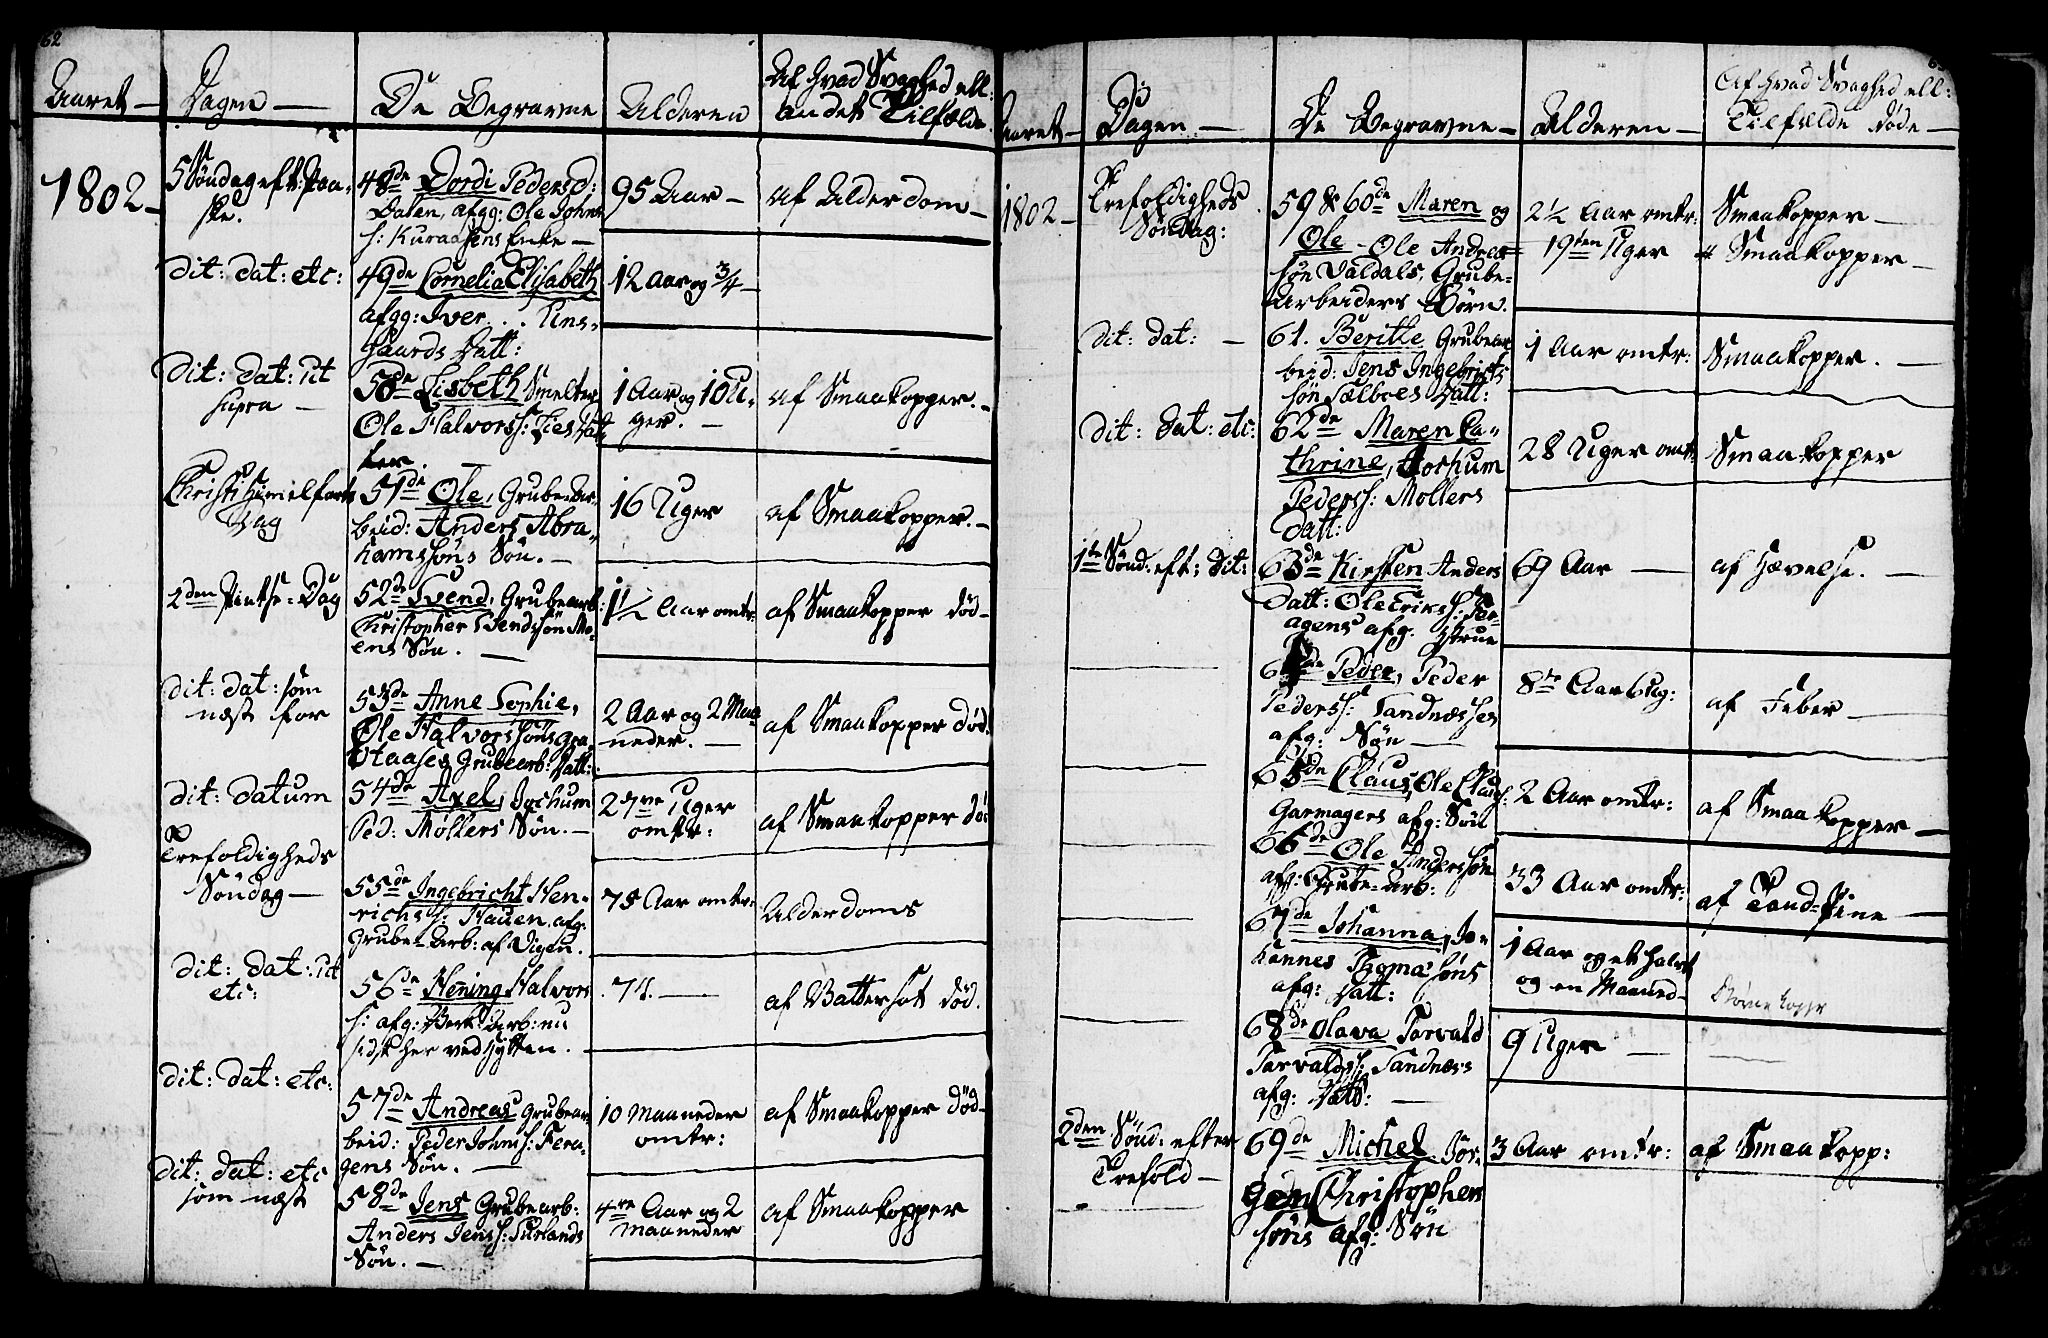 62
Aaret —
Dagen —
De Begravne
Alderen
Af hvad Svaghed ell:
andet Tilfælde
1802 —
5 Søndag eft: Paa-
ske.
48de Dordi Pedersd:
Dalen, afgg: Ole Johns
s: Kuraasens Enke —
95 Aar —
af Alderdom —
dit: dat: etc:
49de Cornelia Elisabeth
afgg: Iver . . . Tins-
gaards Datt:
12 Aar og 3/4 —
dit: dat: ut
supra —
50de Lisbeth Smelter
Ole Halvorss: Lies Datt
ter. —
1 Aar og 10 U-
ger. —
af Smaakopper. —
Christi Himelfarts
Dag
51de Ole, Grube Ar-
beid: Anders Abra-
hamssøns Søn. —
16 Uger
af Smaakopper. —
2den Pintse-Dag
52de Svend, Grubearb:
Christopher Svendssøn Mo-
ens Søn. —
1 1/2 Aar omtr:
af Smaakopper død —
dit: dat: som
næst for
53de Anne Sophie,
Ole Halvorssøns
Grubearb: Datt:
2 Aar og 2 Maa-
neder. —
af Smaakopper død.
dit: datum
54de Axel, Jochum
Ped: Møllers Søn. —
27ve Uger
omtr:
af Smaakopper dø
Trefoldigheds
Søndag —
55de Ingebricht Hen-
richss: Hauen, afg:
Grube-Arb: af Digen.
75 Aar omtr:
Alderdoms
dit: dat: ut
etc:
56de Hening Halvors
s: afg: Berk Arb: nu
sidst her ved Hytten.
74. —
af Vattersot død.
dit: dat: etc:
57de Andreas Grubear
beid: Peder Johnss: Fera-
gens Søn. —
10 Maaneder
omtr:
af Smaakopper død —
dit: dat: etc
som næst
58de Jens Grubearb:
Anders Jenss: Surlands
Søn. —
4re Aar og 2
Maaneder
af Smaakopper
63
Aaret —
Dagen —
De Begravne —
Alderen —
Af hvad Svaghed ell:
Tilfælde døde —
1802 —
Trefoldigheds
Søndag:
59 & 60de Maren og
Ole — Ole Andreas
søn Daldals, Grube-
Arbeiders Børn.
2 1/2 Aar omtr:
19ten Uger
Smaakopper —
Smaakopper —
dit: dat: —
61. Berithe Grubear
beid: Jens Ingebrigts
søn Sælboes Datt:
1 Aar omtr:
Smaakopper. —
dit: dat: etc:
62de Maren Ca-
thrine, Jochum
Pederss: Møllers
Datt:
28 Uger omtr:
Smaakopper
1te Sønd: eft: dit:
63de Kirsten Anders
Datt: Ole Erikss: Fer-
agens afg: Hustrue
69 Aar —
af Hævelse. —
64de Peder, Peder
Pederss: Sandnæsses
afg: Søn —
8te Aar 6 Ug:
af Feber —
65de Claus, Ole Claus:
Garmagers afg: Søn
2 Aar omtr:
af Smaakopper —
66de Ole Anderssøn
afg: Grube-Arb:
33 Aar omtr:
af Tand-Pine —
67de Johanna, Jo-
hannes Thomæsøns
afg: Datt:
1 Aar og et halvt
og en Maaned —
Børnekopper
68de Olava Torvald
Torvaldss: Sandnæss
afg: Datt: —
9 Uger —
2den Sønd: efter
Trefold —
69de Michel Jør-
gen Christophers
søns afg: Søn
3 Aar omtr:
af Smaakopp: